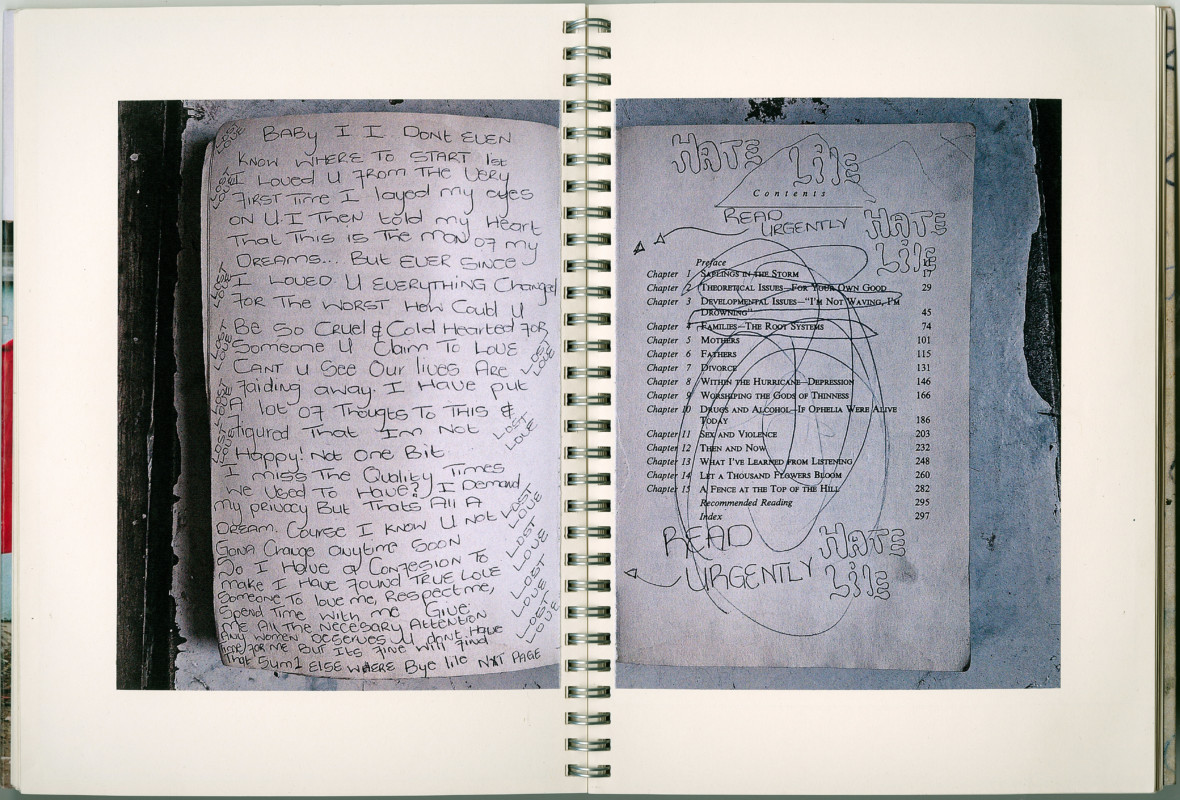 BABY I I DONT EVEN
KNOW WHERE TO START 1st
I LOVED U FROM THE VERY
FIRST Time I layed my eyes
ON U. I THEN told my Heart
THAT THIS IS THE MAN OF my
DREAMS... BUT EVER SINCE
I LOVED U EVERYTHING Changed
FOR THE WORST HOW Could U
BE SO CRUEL & COLD HEARTED FOR
SOMEONE U CLAIM TO LOVE
CANT U SEE OUR lives ARE
Faiding away. I HAVE put
A lot OF THougts TO THIS &
figurd THAT Im NOT
Happy! NOT ONE BIt.
I miss THE QUALITY TIMES
WE USED TO HAVE? I Demand
my privacy BUT THATS All A
DREAM. COURSE I KNOW U NOt
GONA CHANGE anytime SOON
SO I HAVE a CONFESION TO
make I HAVE FOUND TRUE LOVE
SOMEONE TO love me, RESPECT me,
SPEND TIME WITH me GIVE
ME All THE NECESARY ATTENTION
ANY WOMEN DESERVES U dont HAVE
time FOR ME BUT ITS FINE WIll FIND
that sum1 ELSE WHERE Bye lile NXT PAGE
LOST LOVE
LOST LOVE
LOST LOVE
LOST LOVE
LOST LOVE
LOST LOVE
LOST LOVE
LOST LOVE
LOST LOVE
LOST LOVE
LOST LOVE
LOST LOVE
HATE
LILE
Contents
READ
URGENTLY
HATE
LILE
Preface
Chapter 1 SAPLINGS IN THE STORM 17
Chapter 2 THEORETICAL ISSUES—FOR YOUR OWN GOOD 29
Chapter 3 DEVELOPMENTAL ISSUES—"I'M NOT WAVING, I'M
DROWNING" 45
Chapter 4 FAMILIES—THE ROOT SYSTEMS 74
Chapter 5 MOTHERS 101
Chapter 6 FATHERS 115
Chapter 7 DIVORCE 131
Chapter 8 WITHIN THE HURRICANE—DEPRESSION 146
Chapter 9 WORSHIPING THE GODS OF THINNESS 166
Chapter 10 DRUGS AND ALCOHOL—IF OPHELIA WERE ALIVE
TODAY 186
Chapter 11 SEX AND VIOLENCE 203
Chapter 12 THEN AND NOW 232
Chapter 13 WHAT I'VE LEARNED FROM LISTENING 248
Chapter 14 LET A THOUSAND FLOWERS BLOOM 260
Chapter 15 A FENCE AT THE TOP OF THE HILL 282
Recommended Reading 295
Index 297
READ
URGENTLY
HATE
LILE